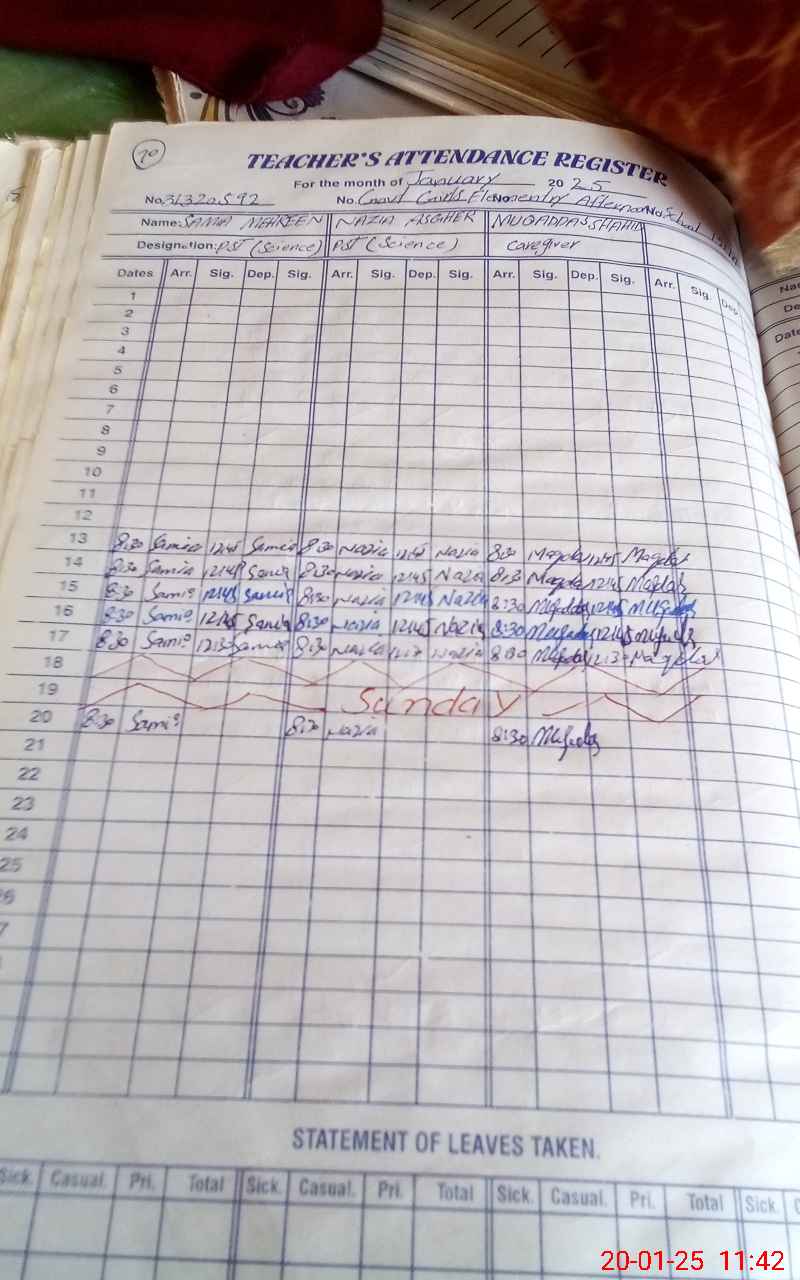 70
TEACHER'S ATTENDANCE REGISTER
For the month of January 20 25
No. 31320592 No. Govt Girls Elementry Afternoon No. School
Name: SAMIA MEHREEN NAZIA ASGHER MUQADDAS SHAHID
Designation: PST (Science) PST (Science) Caregiver
Dates Arr. Sig. Dep. Sig. Arr. Sig. Dep. Sig. Arr. Sig. Dep. Sig. Arr. Sig. Dep.
1
2
3
4
5
6
7
8
9
10
11
12
13 8:30 Samia 12:45 Samia 8:30 Nazia 12:45 Nazia 8:30 12:45
14 8:30 Samia 12:45 8:30 Nazia 12:45 Nazia 8:30 12:45
15 8:30 Samia 12:45 8:30 Nazia 12:45 Nazia 8:30 12:45
16 8:30 Samia 12:45 8:30 Nazia 12:45 Nazia 8:30 12:45
17 8:30 Samia 8:30 Nazia Nazia 8:30
18
19 Sunday
20 8:30 Samia 8:30 Nazia 8:30
21
22
23
24
25
STATEMENT OF LEAVES TAKEN.
Sick. Casual. Pri. Total Sick. Casual. Pri. Total Sick. Casual. Pri. Total Sick.
20-01-25 11:42